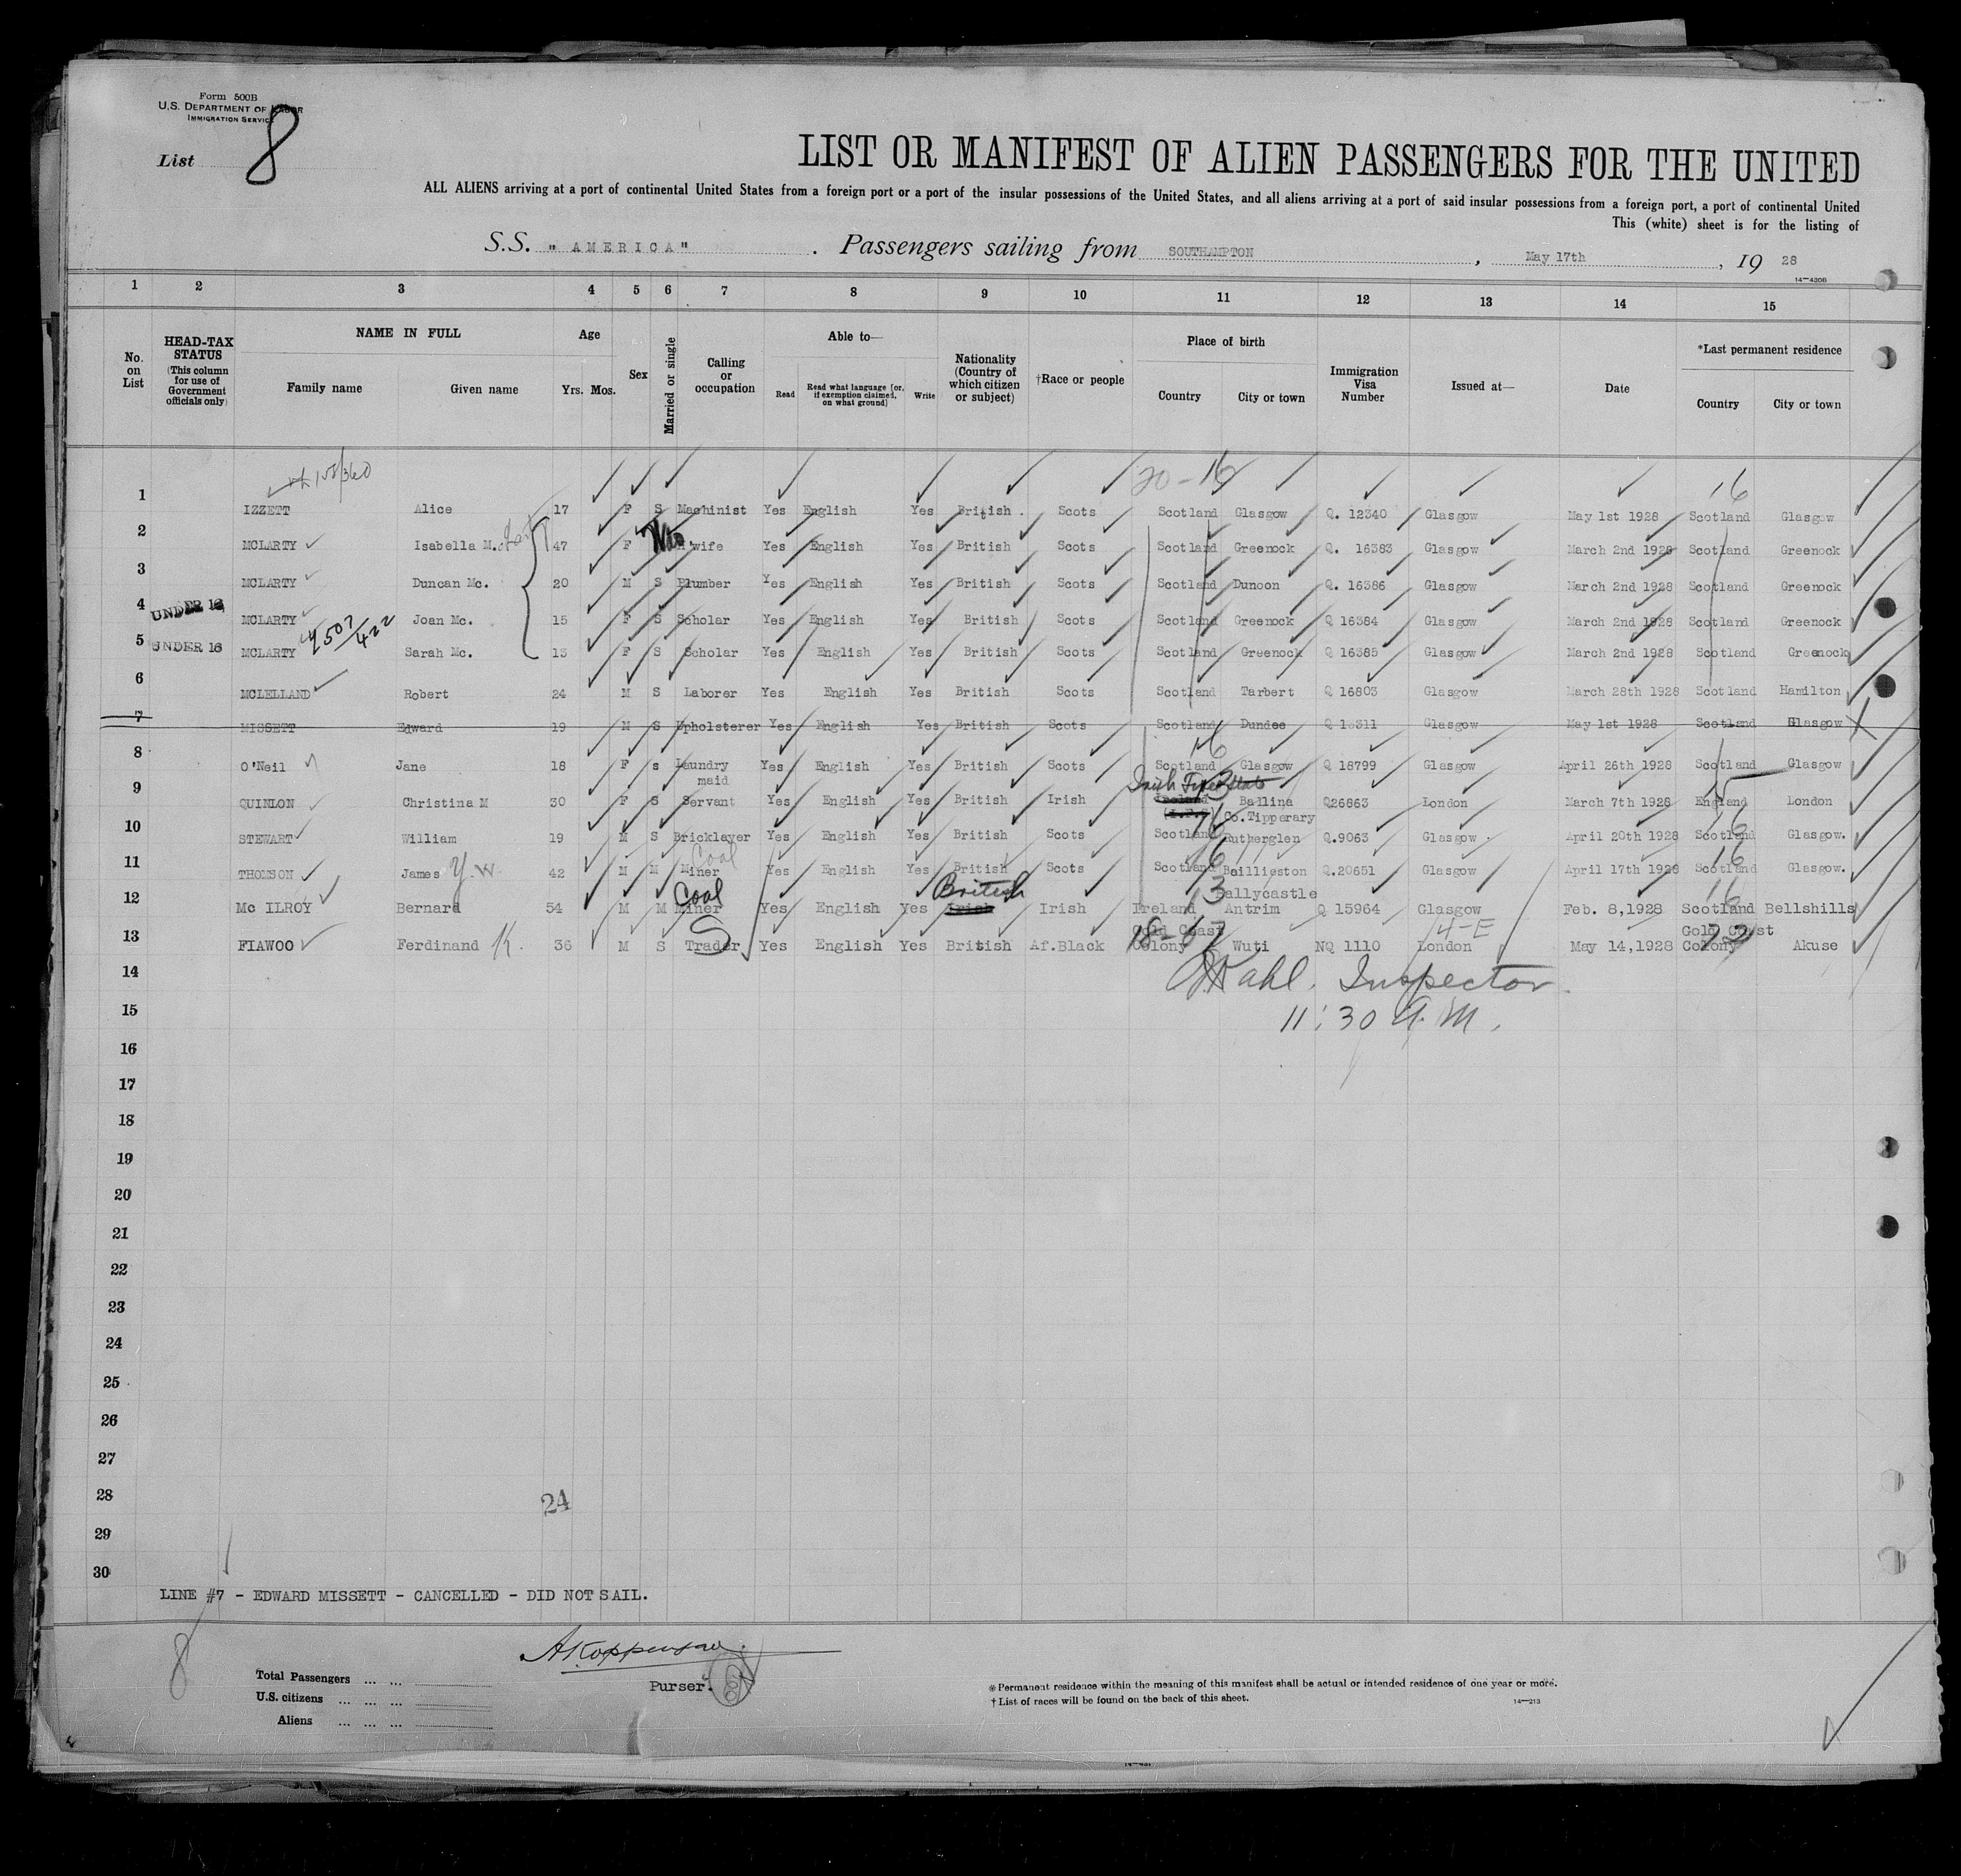 Form 500B
U.S. DEPARTMENT OF LABOR
IMMIGRATION SERVICE
List 8
LIST OR MANIFEST OF ALIEN PASSENGERS FOR THE UNITED
ALL ALIENS arriving at a port of continental United States from a foreign port or a port of the insular possessions of the United States, and all aliens arriving at a port of said insular possessions from a foreign port, a port of continental United
This (white) sheet is for the listing of
S.S. "AMERICA" . Passengers sailing from SOUTHAMPTON , May 17th , 19 28
14-4306
1 2 3 4 5 6 7 8 9 10 11 12 13 14 15
No. on List
HEAD-TAX STATUS (This column for use of Government officials only)
NAME IN FULL
Family name Given name
Age
Yrs. Mos.
Sex
Married or single
Calling or occupation
Able to—
Read
Read what language [or, if exemption claimed, on what ground]
Write
Nationality (Country of which citizen or subject)
†Race or people
Place of birth
Country City or town
Immigration Visa Number
Issued at—
Date
*Last permanent residence
Country City or town
20-16 16
1 IZZETT Alice 17 F S Machinist Yes English Yes British . Scots Scotland Glasgow Q. 12340 Glasgow May 1st 1928 Scotland Glasgow
2 MCLARTY Isabella M. 47 F H'wife Yes English Yes British Scots Scotland Greenock Q. 16383 Glasgow March 2nd 1928 Scotland Greenock
3 MCLARTY Duncan Mc. 20 M S Plumber Yes English Yes British Scots Scotland Dunoon Q. 16386 Glasgow March 2nd 1928 Scotland Greenock
4 UNDER 16 MCLARTY Joan Mc. 15 F S Scholar Yes English Yes British Scots Scotland Greenock Q 16384 Glasgow March 2nd 1928 Scotland Greenock
5 UNDER 16 MCLARTY Sarah Mc. 13 F S Scholar Yes English Yes British Scots Scotland Greenock Q 16385 Glasgow March 2nd 1928 Scotland Greenock
6 MCLELLAND Robert 24 M S Laborer Yes English Yes British Scots Scotland Tarbert Q 16803 Glasgow March 28th 1928 Scotland Hamilton
7 MISSETT Edward 19 M S Upholsterer Yes English Yes British Scots Scotland Dundee Glasgow May 1st 1928 Scotland Glasgow X
8 O'Neil Jane 18 F s Laundry maid Yes English Yes British Scots 16 Scotland Glasgow Q 18799 Glasgow April 26th 1928 Scotland Glasgow
9 QUINLON Christina M 30 F S Servant Yes English Yes British Irish Irish Free State 13 Ireland (I.F.) Ballina Co.Tipperary Q26863 London March 7th 1928 England London 15
10 STEWART William 19 M S Bricklayer Yes English Yes British Scots Scotland Rutherglen 16 Q.9063 Glasgow . April 20th 1928 Scotland Glasgow. 16
11 THOMSON James Y.W. 42 M M Coal Miner Yes English Yes British Scots Scotland Baillieston 16 Q.20651 Glasgow April 17th 1928 Scotland Glasgow. 16
12 Mc ILROY Bernard 54 M M Coal Miner Yes English Yes British Irish Irish Ireland 13 Ballycastle Antrim Q 15964 Glasgow Feb. 8,1928 Scotland Bellshills 16
13 FIAWOO Ferdinand K. 36 M S Trader S Yes English Yes British Af.Black Gold Coast Colony Wuti NQ 1110 London 4-E May 14,1928 Gold Coast Colony Akuse
14 Kahl. Inspector.
15 11:30 A.M.
16
17
18
19
20
21
22
23
24
25
26
27
28 24
29
30
LINE #7 - EDWARD MISSETT - CANCELLED - DID NOT SAIL.
8
Total Passengers ... ...
U.S. citizens ... ... ...
Aliens ... ... ...
Purser.
*Permanent residence within the meaning of this manifest shall be actual or intended residence of one year or more.
†List of races will be found on the back of this sheet.
14-213